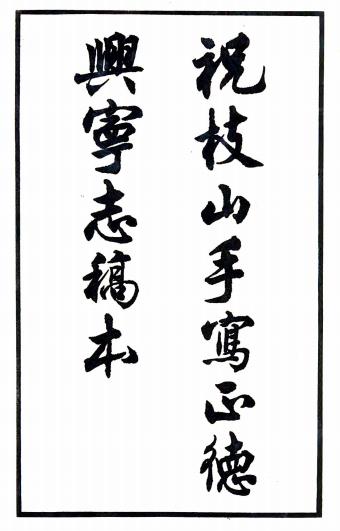 祝枝山手寫正德
興寧志稿本